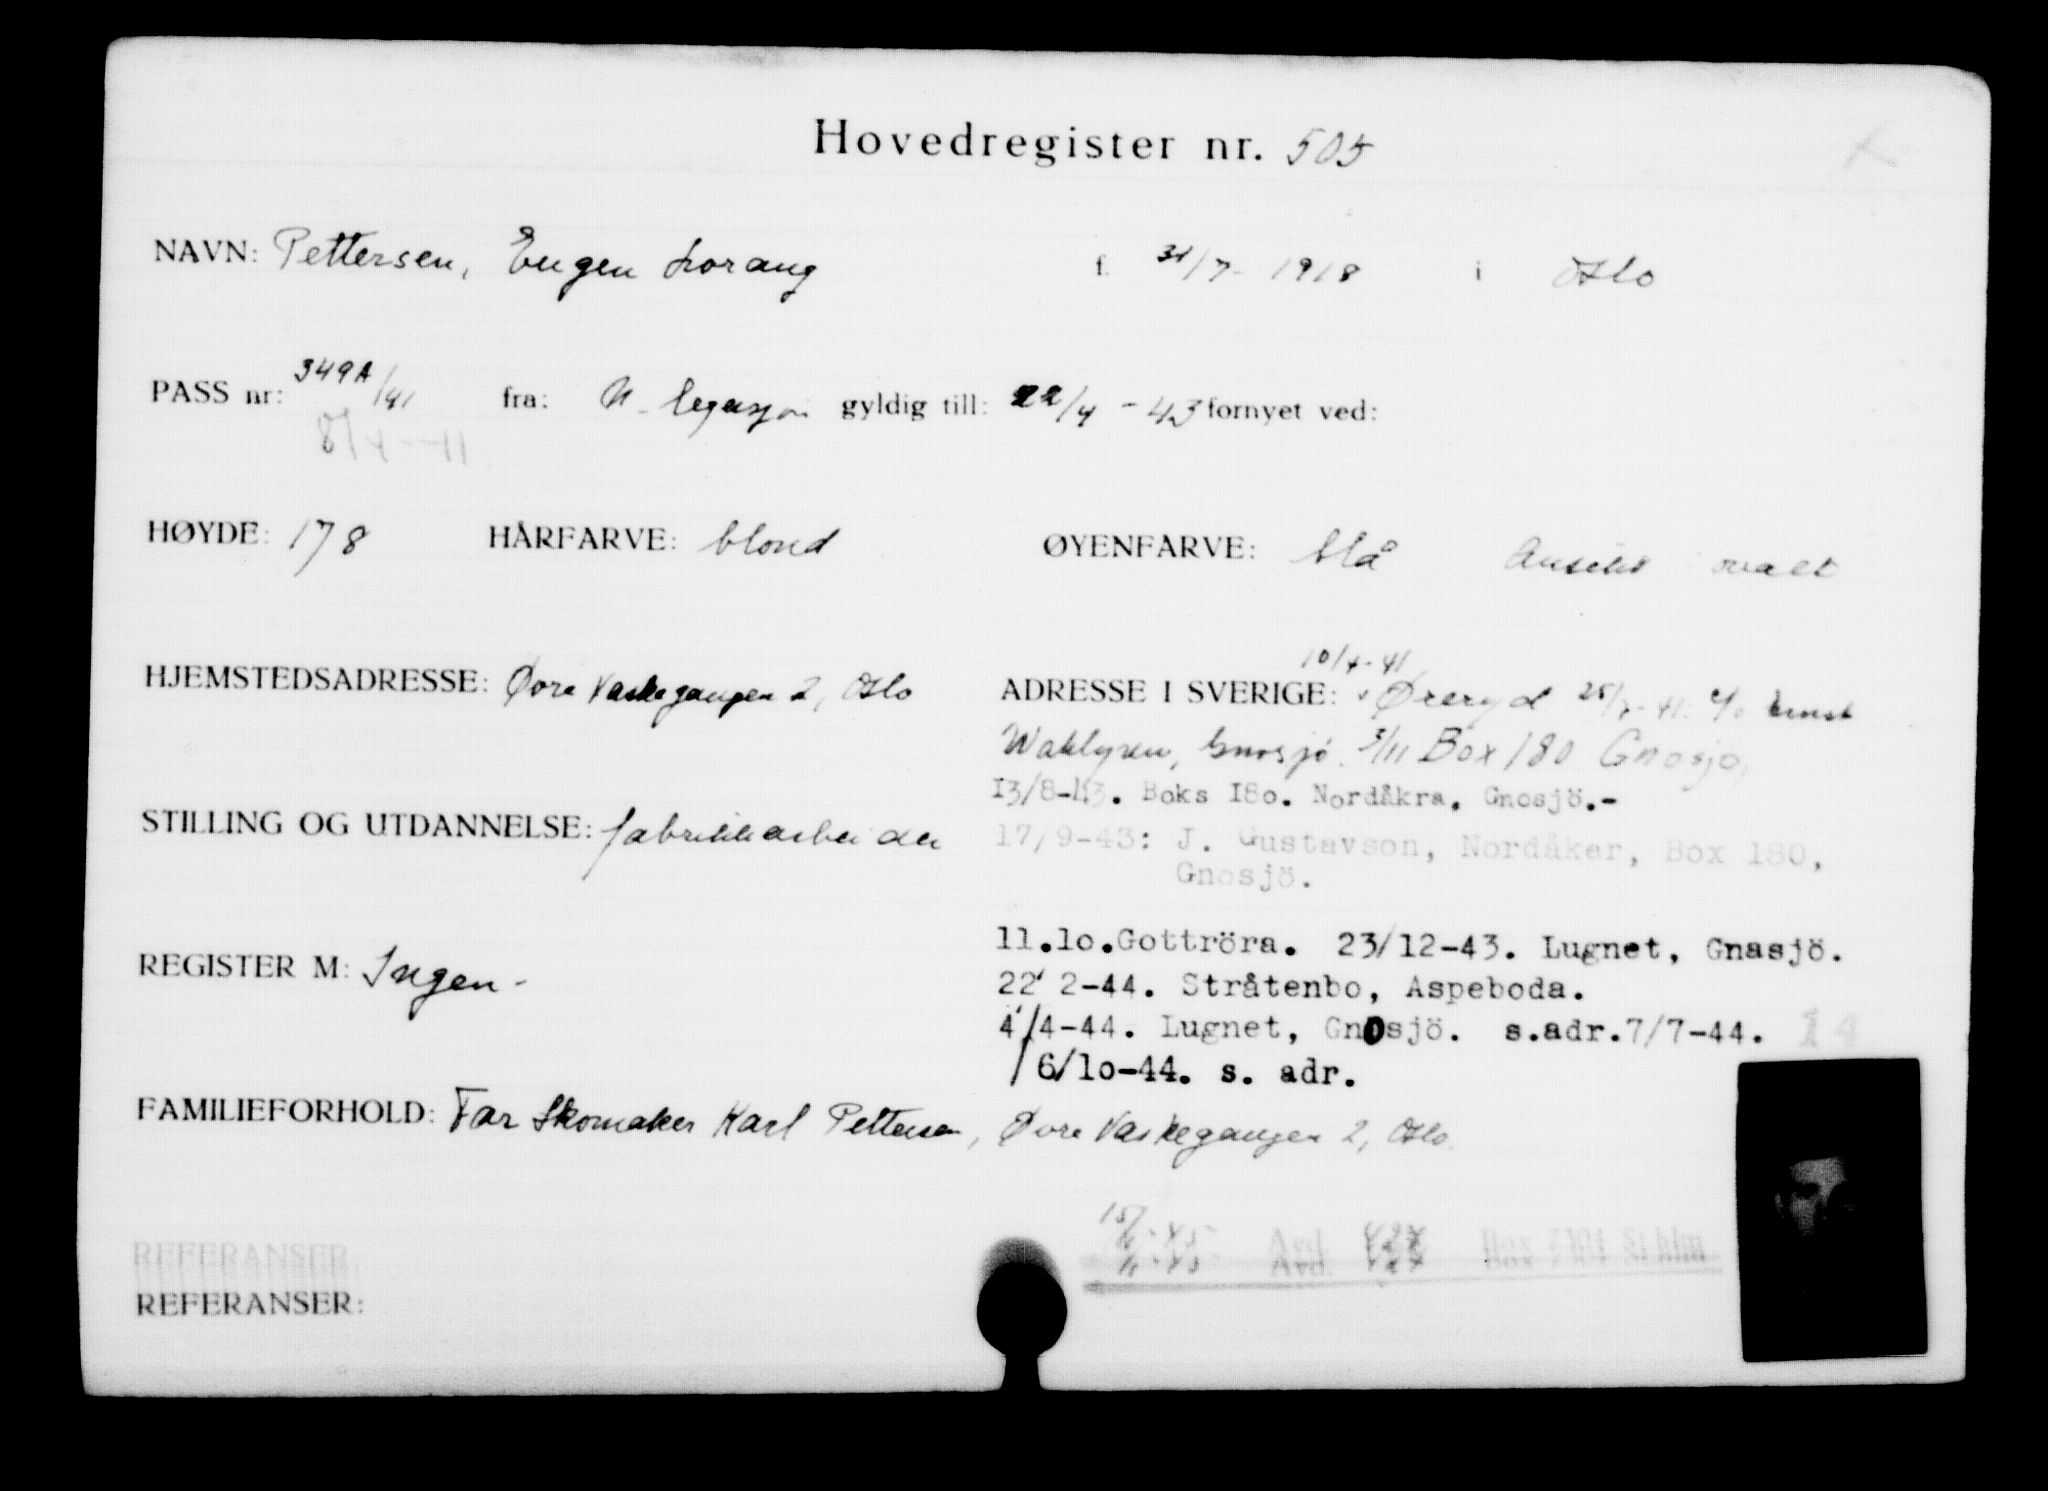 Hovedregister nr. 505
NAVN: Pettersen, Eugen Lorang f. 31/7-1918 i Oslo
PASS nr: 349A/41 fra: N. legasjon gyldig till: 22/4-43 fornyet ved:
8/4-41
HØYDE: 178 HÅRFARVE: blond ØYENFARVE: blå Ansikt ovalt
10/4-41
HJEMSTEDSADRESSE: Øvre Vaskegangen 2, Oslo ADRESSE I SVERIGE: Øreryd 25/7-41. c/o Ernst
Wahlgren, Gnosjö. 3/11 Box 180 Gnosjö,
13/8-43. Boks I8o. Nordåkra, Gnosjö.-
STILLING OG UTDANNELSE: fabrikkarbeider
17/9-43: J. Gustavson, Nordåker, Box 180,
Gnosjö.
11.1o.Gottröra. 23/12-43. Lugnet, Gnasjö.
REGISTER M: Ingen-
22/2-44. Stråtenbo, Aspeboda.
4/4-44. Lugnet, Gnosjö. s.adr.7/7-44. 14
/6/1o-44. s. adr.
FAMILIEFORHOLD: Far Skomaker Karl Pettersen, Øvre Vaskegangen 2, Oslo.
REFERANSER:
REFERANSER: